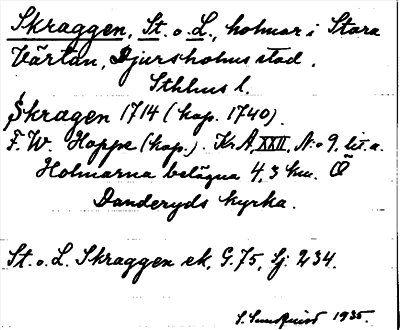 Skraggen, St. o. L., holmar i Stora
Värtan, Djursholms stad.
Sthlms l.
Skragen 1714 (kop. 1740).
F. W. Hoppe (kop.). Kr. A, XXII, No 9, lit. a.
Holmarna belägna 4,3 km. Ö
Danderyds kyrka.
St. o. L. Skraggen ek, G. 75, Sj. 234.
S. Sundquist 1935.